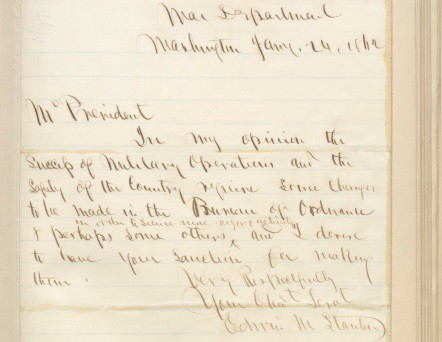 War Department
Washington Jany. 24, 1862
Mr President
In my opinion the
success of Military Operations and the
safety of the Country require some changes
to be made in the Bureau of Ordnance
in order to secure more vigor & activity
& perhaps some others ^ and I desire
to have your Sanction for making
them.
Very Respectfully
Your Obdt Servt
Edwin M Stanton